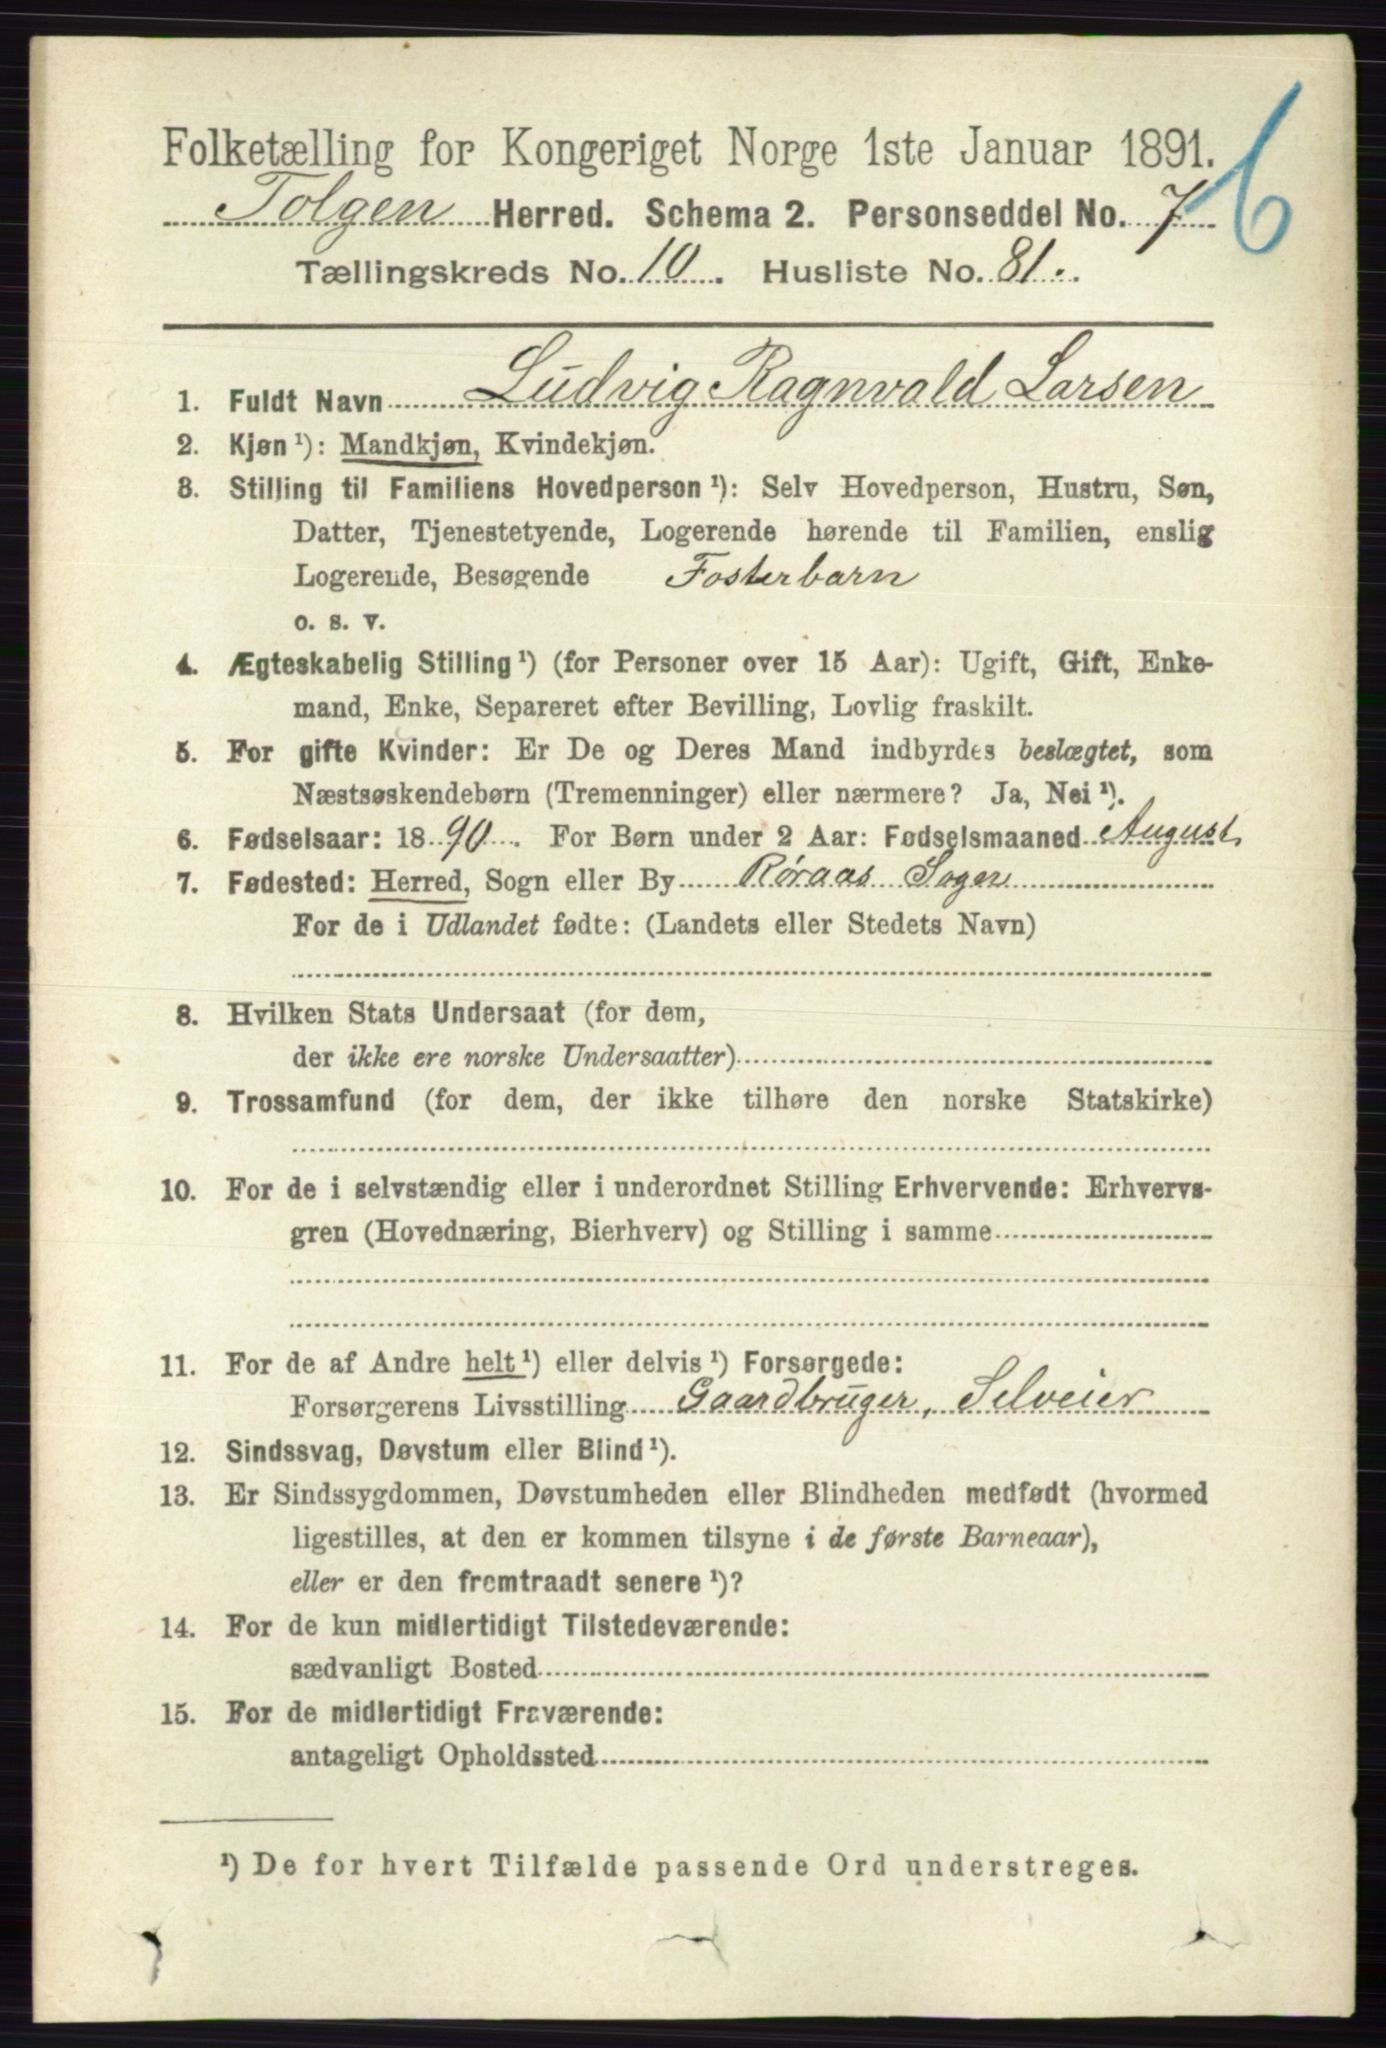 Folketælling for Kongeriget Norge 1ste Januar 1891.
6
Tolgen Herred. Schema 2. Personseddel No. 7
Tællingskreds No. 10. Husliste No. 81.
1. Fuldt Navn Ludvig Ragnvald Larsen
2. Kjøn ¹): Mandkjøn, Kvindekjøn.
3. Stilling til Familiens Hovedperson ¹): Selv Hovedperson, Hustru, Søn,
Datter, Tjenestetyende, Logerende hørende til Familien, enslig
Logerende, Besøgende Fosterbarn
o. s. v.
4. Ægteskabelig Stilling ¹) (for Personer over 15 Aar): Ugift, Gift, Enke-
mand, Enke, Separeret efter Bevilling, Lovlig fraskilt.
5. For gifte Kvinder: Er De og Deres Mand indbyrdes beslægtet, som
Næstsøskendebørn (Tremenninger) eller nærmere? Ja, Nei ¹).
6. Fødselsaar: 1890. For Børn under 2 Aar: Fødselsmaaned August
7. Fødested: Herred, Sogn eller By Røraas Sogn
For de i Udlandet fødte: (Landets eller Stedets Navn)
8. Hvilken Stats Undersaat (for dem,
der ikke ere norske Undersaatter)
9. Trossamfund (for dem, der ikke tilhøre den norske Statskirke)
10. For de i selvstændig eller i underordnet Stilling Erhvervende: Erhvervs-
gren (Hovednæring, Bierhverv) og Stilling i samme
11. For de af Andre helt ¹) eller delvis ¹) Forsørgede:
Forsørgerens Livsstilling Gaardbruger, Selveier
12. Sindssvag, Døvstum eller Blind ¹).
13. Er Sindssygdommen, Døvstumheden eller Blindheden medfødt (hvormed
ligestilles, at den er kommen tilsyne i de første Barneaar),
eller er den fremtraadt senere ¹)?
14. For de kun midlertidigt Tilstedeværende:
sædvanligt Bosted
15. For de midlertidigt Fraværende:
antageligt Opholdssted
¹) De for hvert Tilfælde passende Ord understreges.